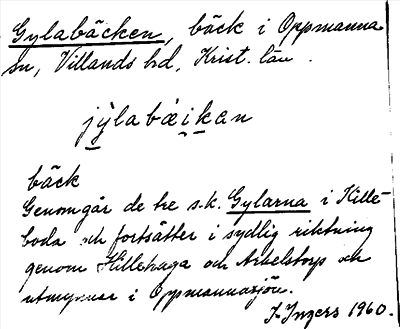 Gylabäcken, bäck i Oppmanna
sn, Villands hd, Krist. län.
jỳlabæikan
bäck
Genomgår de tre s.k. Gylarna i Kille-
boda och fortsätter i sydlig riktning
genom Hillehuga och Arkelstorp och
utmynnar i Oppmannasjön.
I. Ingers 1960.